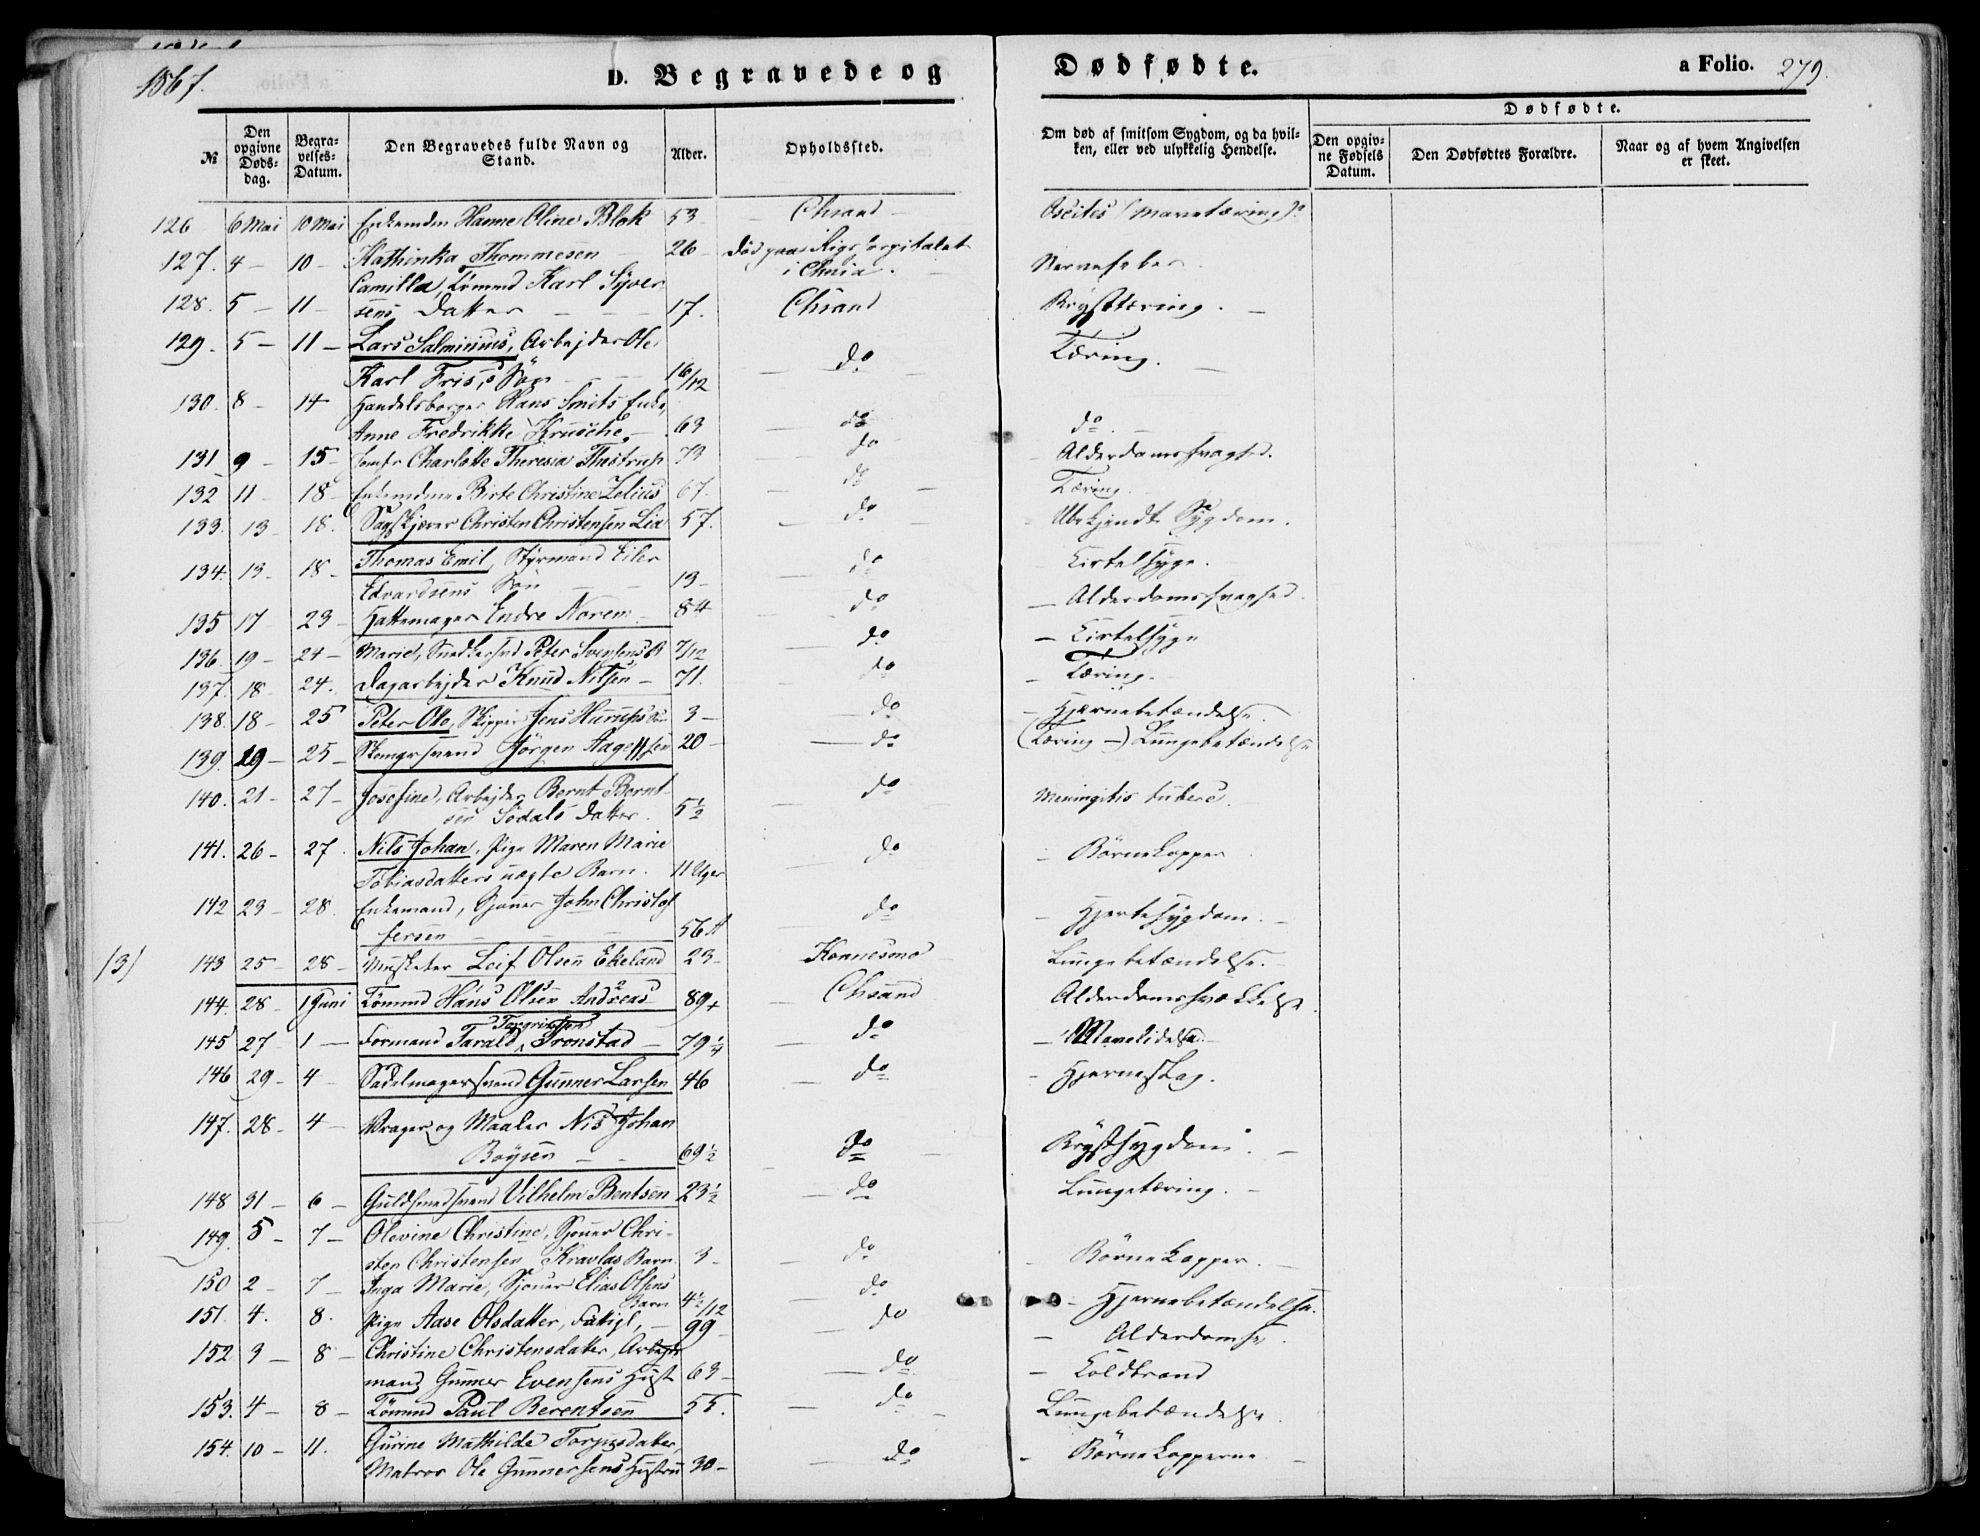 1867.
D. Begravede og Dødfødte.
a Folio. 279.
№
Den opgivne Døds-dag.
Begra-velses-Datum.
Den Begravedes fulde Navn og Stand.
Alder.
Opholdssted.
Om død af smitsom Sygdom, og da hvil-ken, eller ved ulykkelig Hendelse.
Dødfødte.
Den opgiv-ne Fødsels Datum.
Den Dødfødtes Forældre.
Naar og af hvem Angivelsen er skeet.
126 6 Mai 10 Mai Enkemdn Hanne Oline Blok 53 Chrand
127. 4 – 10 – Kathinka Thommesen 26 – Død paa Rigshospitalet Nervefeber
i Chnia.
Camilla, Tømmd Karl Syver
128. 5 – 11 – sens Datter – – – 17. Chsand Brysttæring. –
129. 5 – 11 – Lars Salminius, Arbejder Ole
Karl Friis's Søn – – 16/12 do Tæring.
130. 8 – 14 Handelsborger Hans Smits Enke,
Anne Fredrikke Krusche. – 63 do do
131 9 – 15 – Jomfr Charlotte Theresia Thastrup 73 do Alderdomssvaghed.
132 11 – 18 – Enkemdn Birte Christine Zelius 67. do Tæring.
133. 13 – 18. Sagskjærer Christen Christensen Lia 57. do Ubekjendt Sygdom.
134. 13 – 18 – Thomas Emil, Styrmand Eiler
Edvardsens Søn – – 13 – do Kirtelsyge.
135 17 – 23 – Hattemager Endre Norem – 84 do – Alderdomssvaghed.
136. 19 – 24 – Marie, Snedkersvd Peter Svensens B 7/12 do – Kirtelsyge
137. 18 – 24. Dagarbejder Knud Nilsen – 71. do – Tæring.
138. 18 – 25 Peter Ole, Skipper Jens Hurups Søn 3 – do – Hjernebetændelse.
139. 19 – 25 – Skomgrsvend Jörgen Aagessen 20 – do (Tæring –) Lungebetændelse
140. 21 – 27 – Josefine, Arbejder Bernt Bernt-
sen Sødals Datter. 5½ do Meningitis tuberc.
141. 26 – 27. Nils Johan, Pige Maren Marie
Tobiasdatters uægte Barn. 11 Uger do – Børnekopper
142 23 – 28. Enkemand, Sjouer John Christof
fersen – – – 56 do – Hjertesygdom. –
(3) 143 25 – 28 – Musketer Leif Olsen Ekeland 23 – Konnesmo Lungebetændelse. –
144. 28 – 1 Juni Tömmd Hans Olsen Andreas 89 Chsand Alderdomssvækkelse
145 27 – 1 — Formand Tarald Torgrimsen Tronstad – 79¼ do – Mavelidelse –
146 29 – 4 – Sadelmagersvend Gunner Larsen 46 do – Hjerneslag.
147. 28 – 4 – Vrager og Maaler Nis Johan
Boysen – – 69½ do Brystsygdom. –
148 31 – 6 – Guldsmedsvend Vilhelm Bentsen 23½ do Lungetæring. –
149. 5 – 7 – Olevine Christine, Sjouer Chri-
sten Christensen Kravlas Barn 3 – do – Børnekopper. –
150 2 – 7 – Inga Marie, Sjouer Elias Olsens
Barn 4½/12 do – Hjernebetændelse.
151. 4. 8. Pige Aase Olsdatter, Fattigl, – 99 do – Alderdom
152 3 – 8 – Christine Christensdatter, Arbejds
mand Gunner Evensens Hust 63 – do – Koldbrand
153. 4 – 8 – Tömmd Paul Berentsen 55. do Lungebetændelse.
154. 10 – 11. Gurine Mathilde Torjusdatter,
Matros Ole Gunnersens Hustru 30 – do – Børnekopperne –